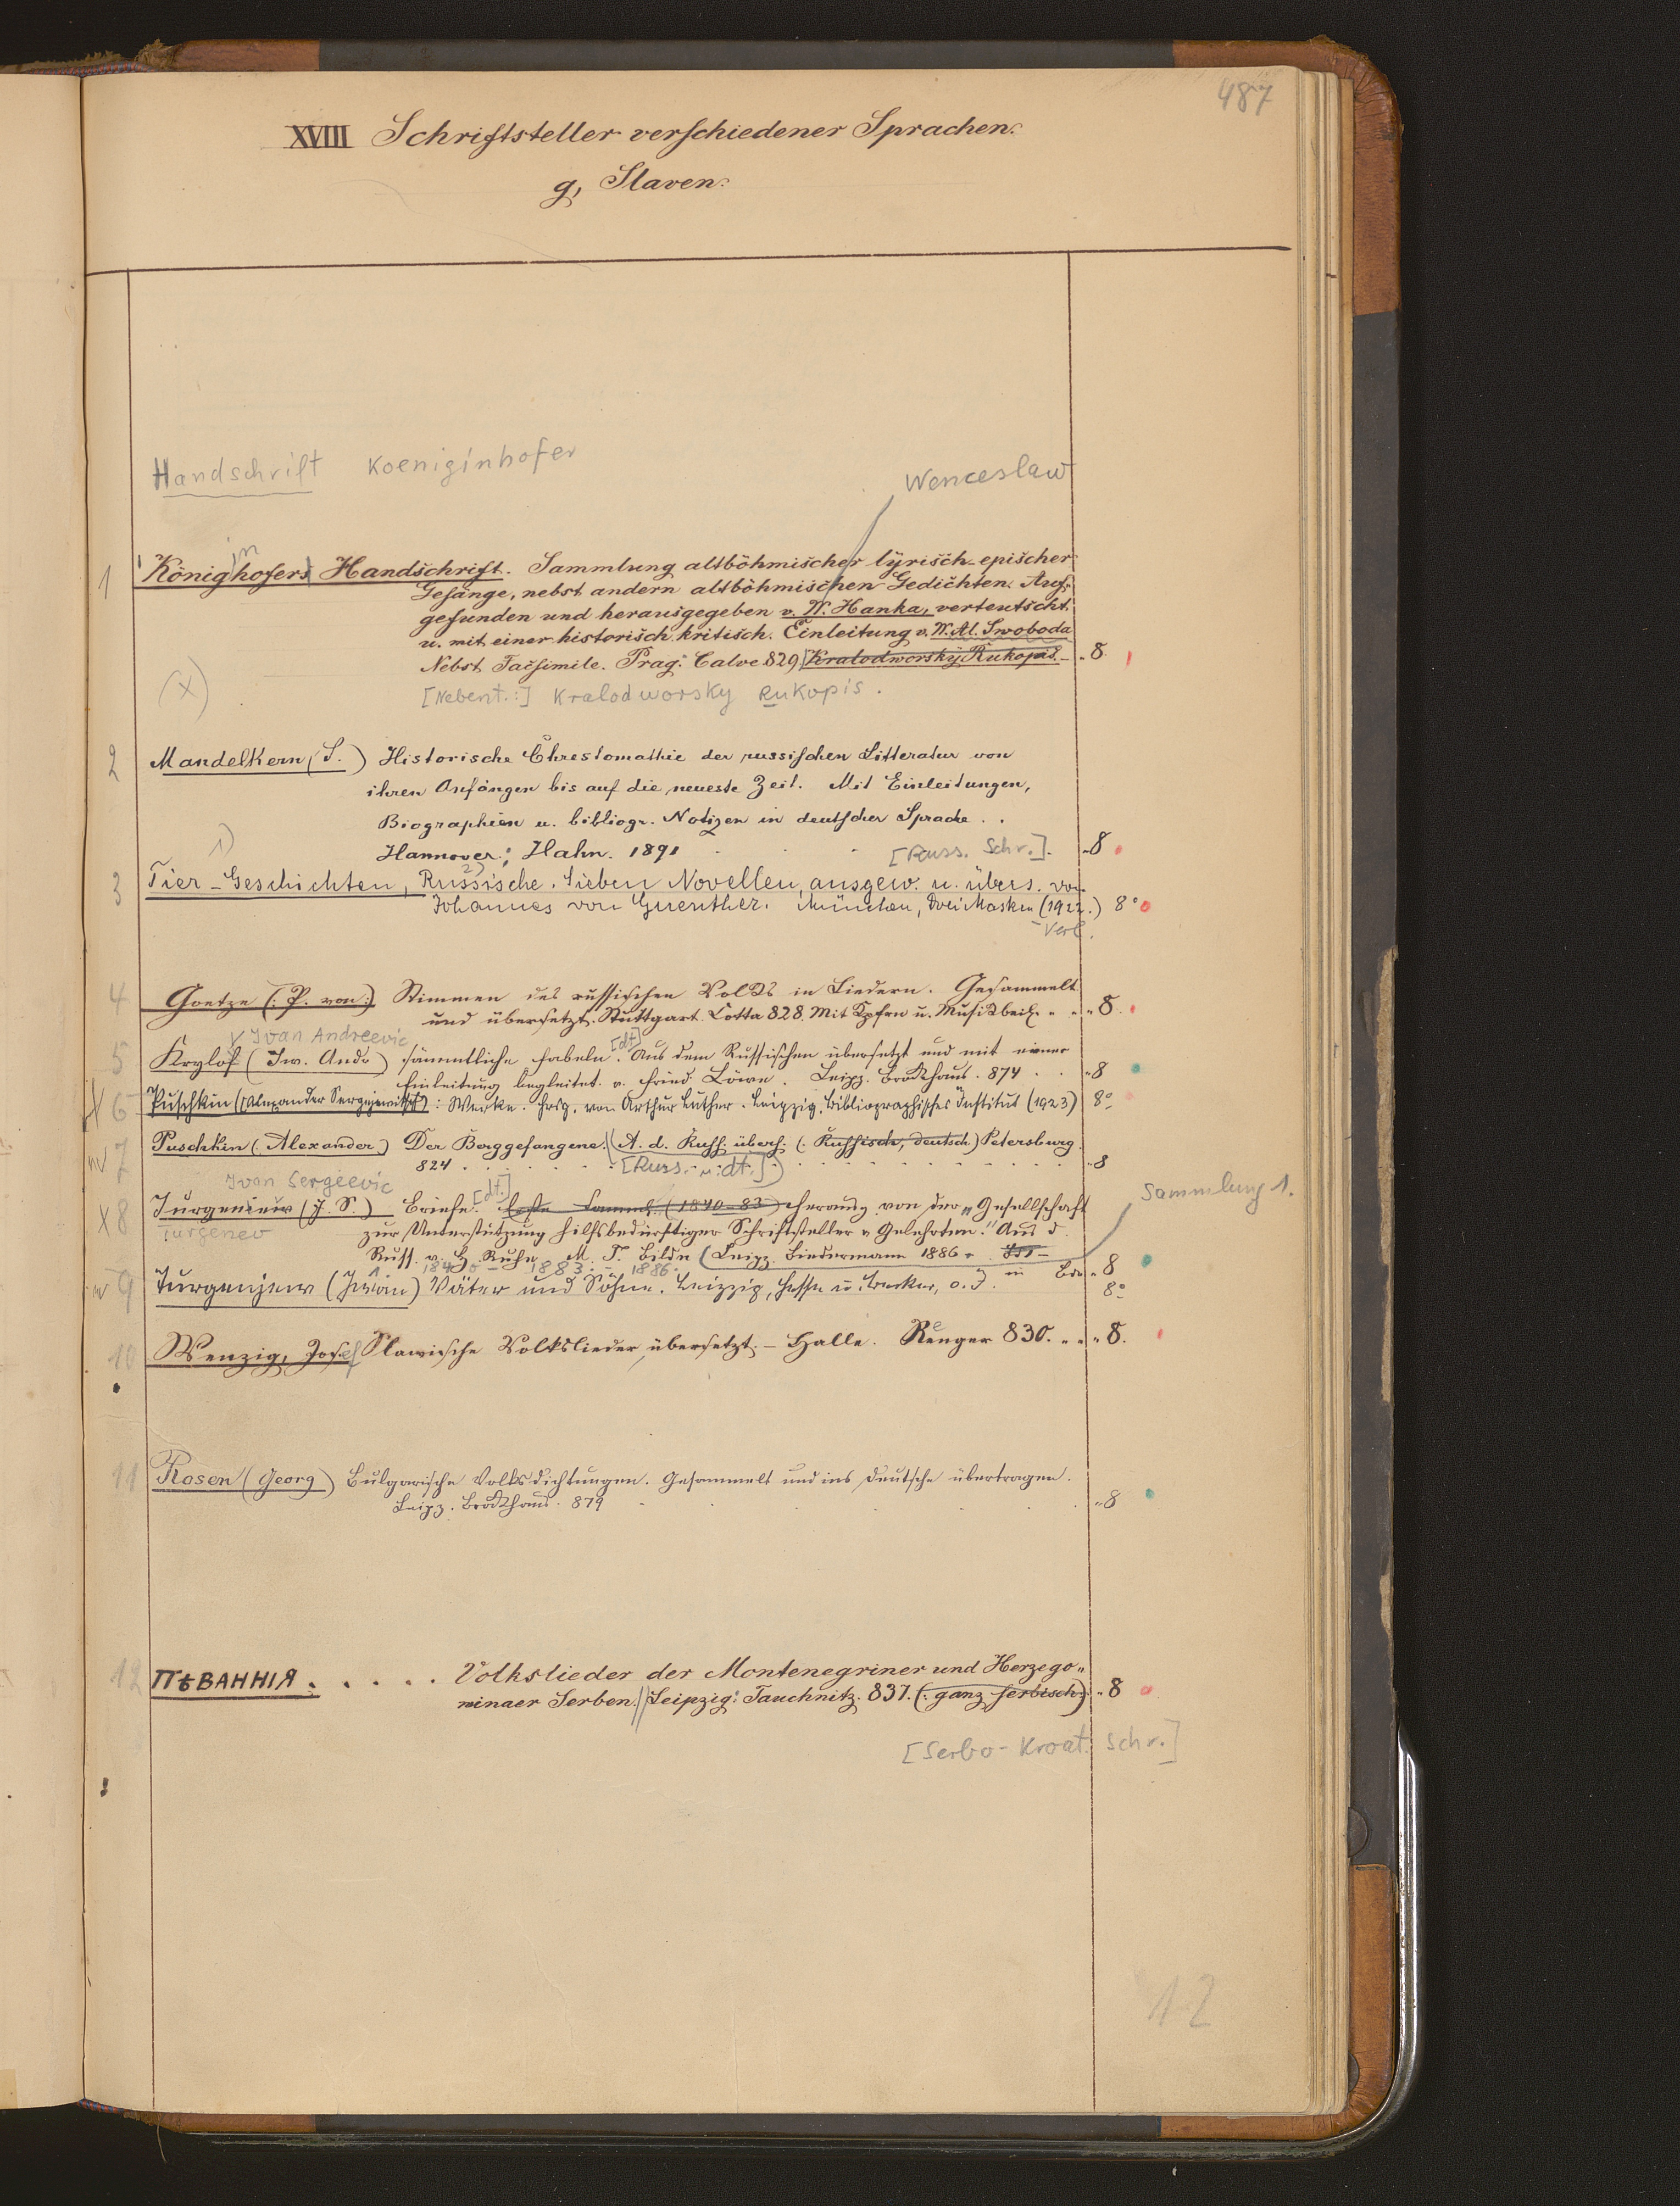 487
XVIII Schriftsteller verschiedener Sprachen.
g, Slaven.
Handschrift Koeniginhofer
Wenceslaw
1 Königinhofer Handschrift. Sammlung altböhmischer lyrisch-epischer
Gesänge, nebst andern altböhmischen Gedichten. Auf-
gefunden und herausgegeben v. W. Hanka, verteutscht
u. mit einer historisch kritisch. Einleitung v. W. Al. Swoboda
Nebst Facsimile. Prag: Calve 829. Kralodworský Rukopis. 8.
(x) [Nebent.:] Kralodworsky Rukopis.
2 Mandelkern (S.) Historische Chrestomathie der russischen Litteratur von
ihren Anfängen bis auf die neueste Zeit. Mit Einleitungen,
Biographien u. bibliogr. Notizen in deutscher Sprache . .
Hannover; Hahn. 1891 [Russ. Schr.]. 8
1) 2)
3 Tier-Geschichten, Russische. Sieben Novellen, ausgew. u. übers. von
Johannes von Guenther. München, Drei Masken (1922.) 8°
Verl.
4 Goetze (: P. von:) Stimmen des russischen Volks in Liedern. Gesammelt
und übersetzt. Stuttgart. Cotta 828. Mit Kpfrn u. Musikbeil. 8.
Ivan Andreevic [dt]
5 Krylof (Iw. Andr) sämmtliche Fabeln. Aus dem Russischen übersetzt und mit einer
Einleitung begleitet v. Fried. Löwe. Leipz. Brockhaus. 874 . . 8
X 6 Puschkin (Alexander Sergejewitsch): Werke. Hrsg. von Arthur Luther. Leipzig, Bibliographisches Institut (1923) 8°
7 Puschkin (Alexander) Der Berggefangene. A. d. Russ. übers. (: Russisch, deutsch) Petersburg.
824 . . . [Russ. u. dt.] 8
Ivan Sergeevic [dt.]
Sammlung 1.
X 8 Turgeniew (J. S.) Briefe. Erste Samml. (1840-83) herausg. von der „Gesellschaft
Turgenev zur Unterstützung hilfsbedürftiger Schriftsteller u Gelehrten." Aus d.
Russ. v. H. Ruhe. M. T. Bildn (Leipz. Biedermann 1886. 8
1840 - 1883. - 1886.
9 Turgenjew (Iwan) Väter und Söhne. Leipzig, Hesse u. Becker, o. J. 8°
10 Wenzig, Josef Slawische Volkslieder übersetzt. - Halle. Renger 830. 8.
11 Rosen (Georg) Bulgarische Volksdichtungen. Gesammelt und ins Deutsche übertragen.
Leipz. Brockhaus. 879 8
12 ПѢВАННІЯ . . . . . Volkslieder der Montenegriner und Herzego„
winaer Serben. Leipzig: Tauchnitz. 837. (: ganz serbisch:) 8
[Serbo-Kroat. Schr.]
12